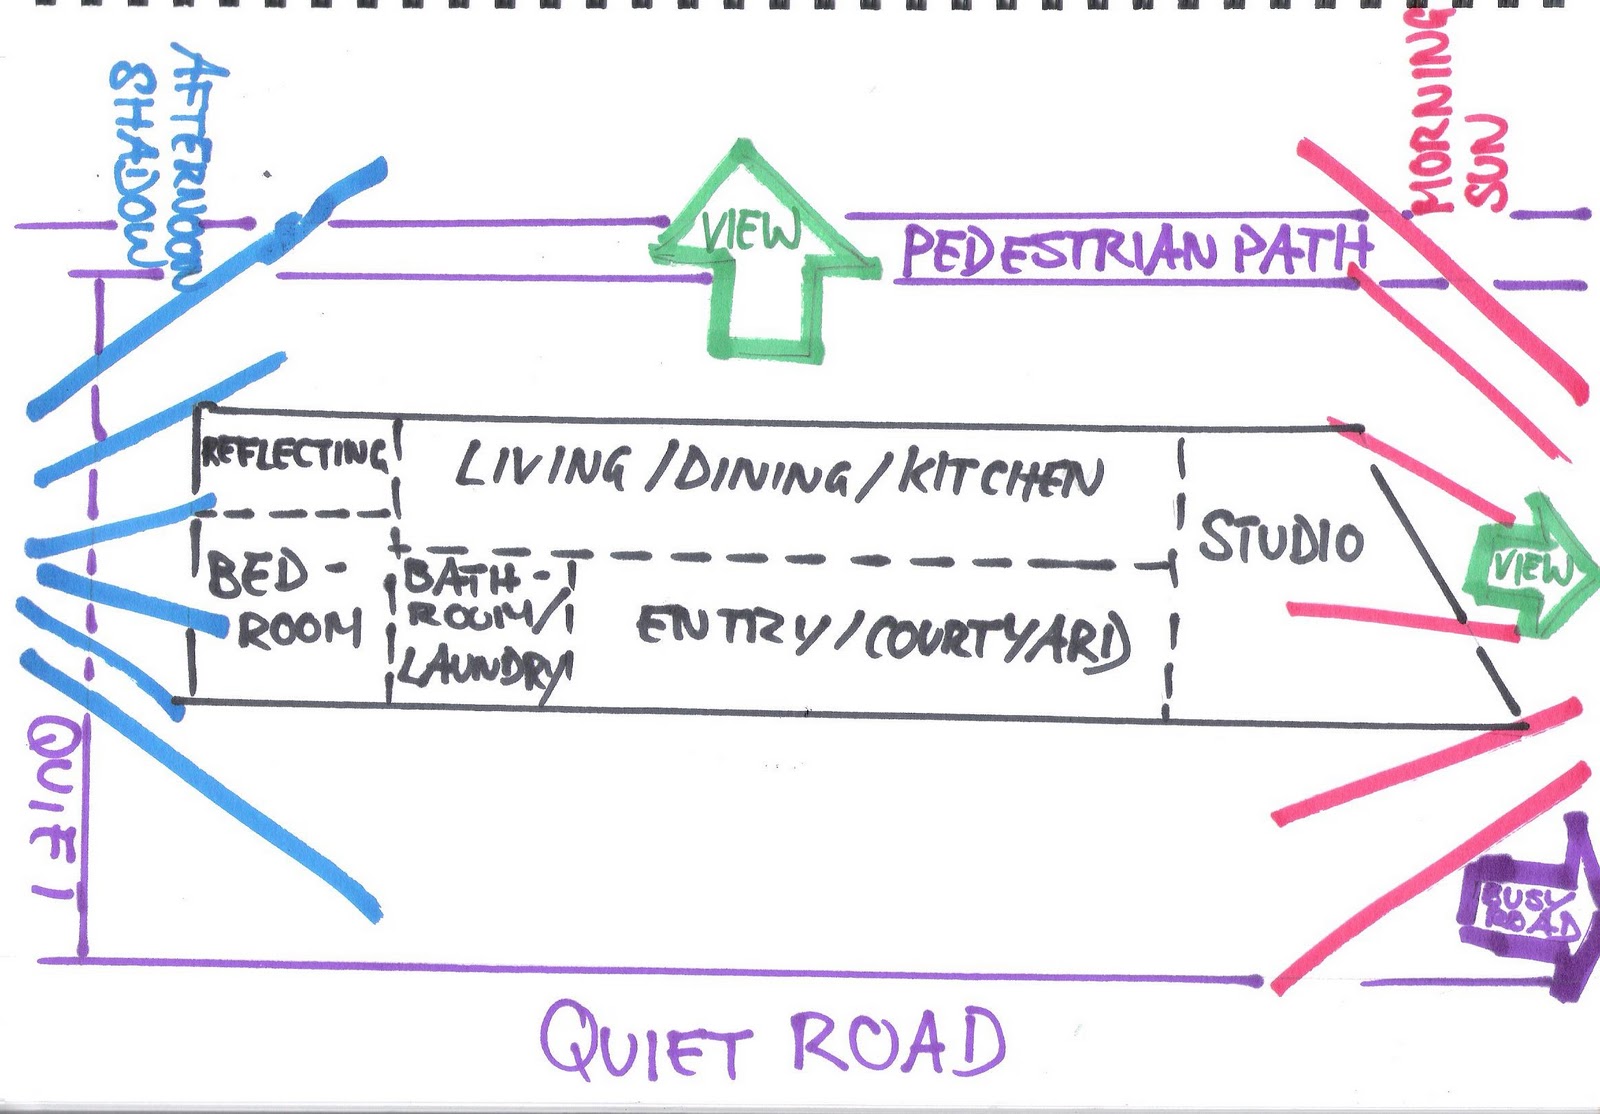 AFTERNOON
SHADOW
MORNING
SUN
VIEW
PEDESTRIAN PATH
REFLECTING
LIVING/DINING/KITCHEN
STUDIO
VIEW
BED-
ROOM
BATH-
ROOM/
LAUNDRY
ENTRY/COURTYARD
QUIET
BUSY
ROAD
QUIET ROAD